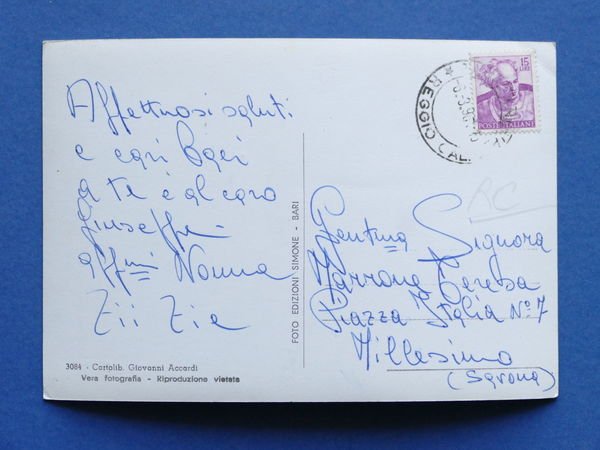 Affettuosi saluti
e cari Baci
a te è al caro
Giuseppe
aff/mi Nonna
Zii Zie
3084 - Cartolib. Giovanni Accardi
Vera fotografia - Riproduzione vietata
FOTO EDIZIONI SIMONE - BARI
15
LIRE
POSTE ITALIANE
REGGIO CAL.
RC
Gent.ma Signora
Marrone Teresa
Piazza Italia N° 7
Millesimo
(Savona)